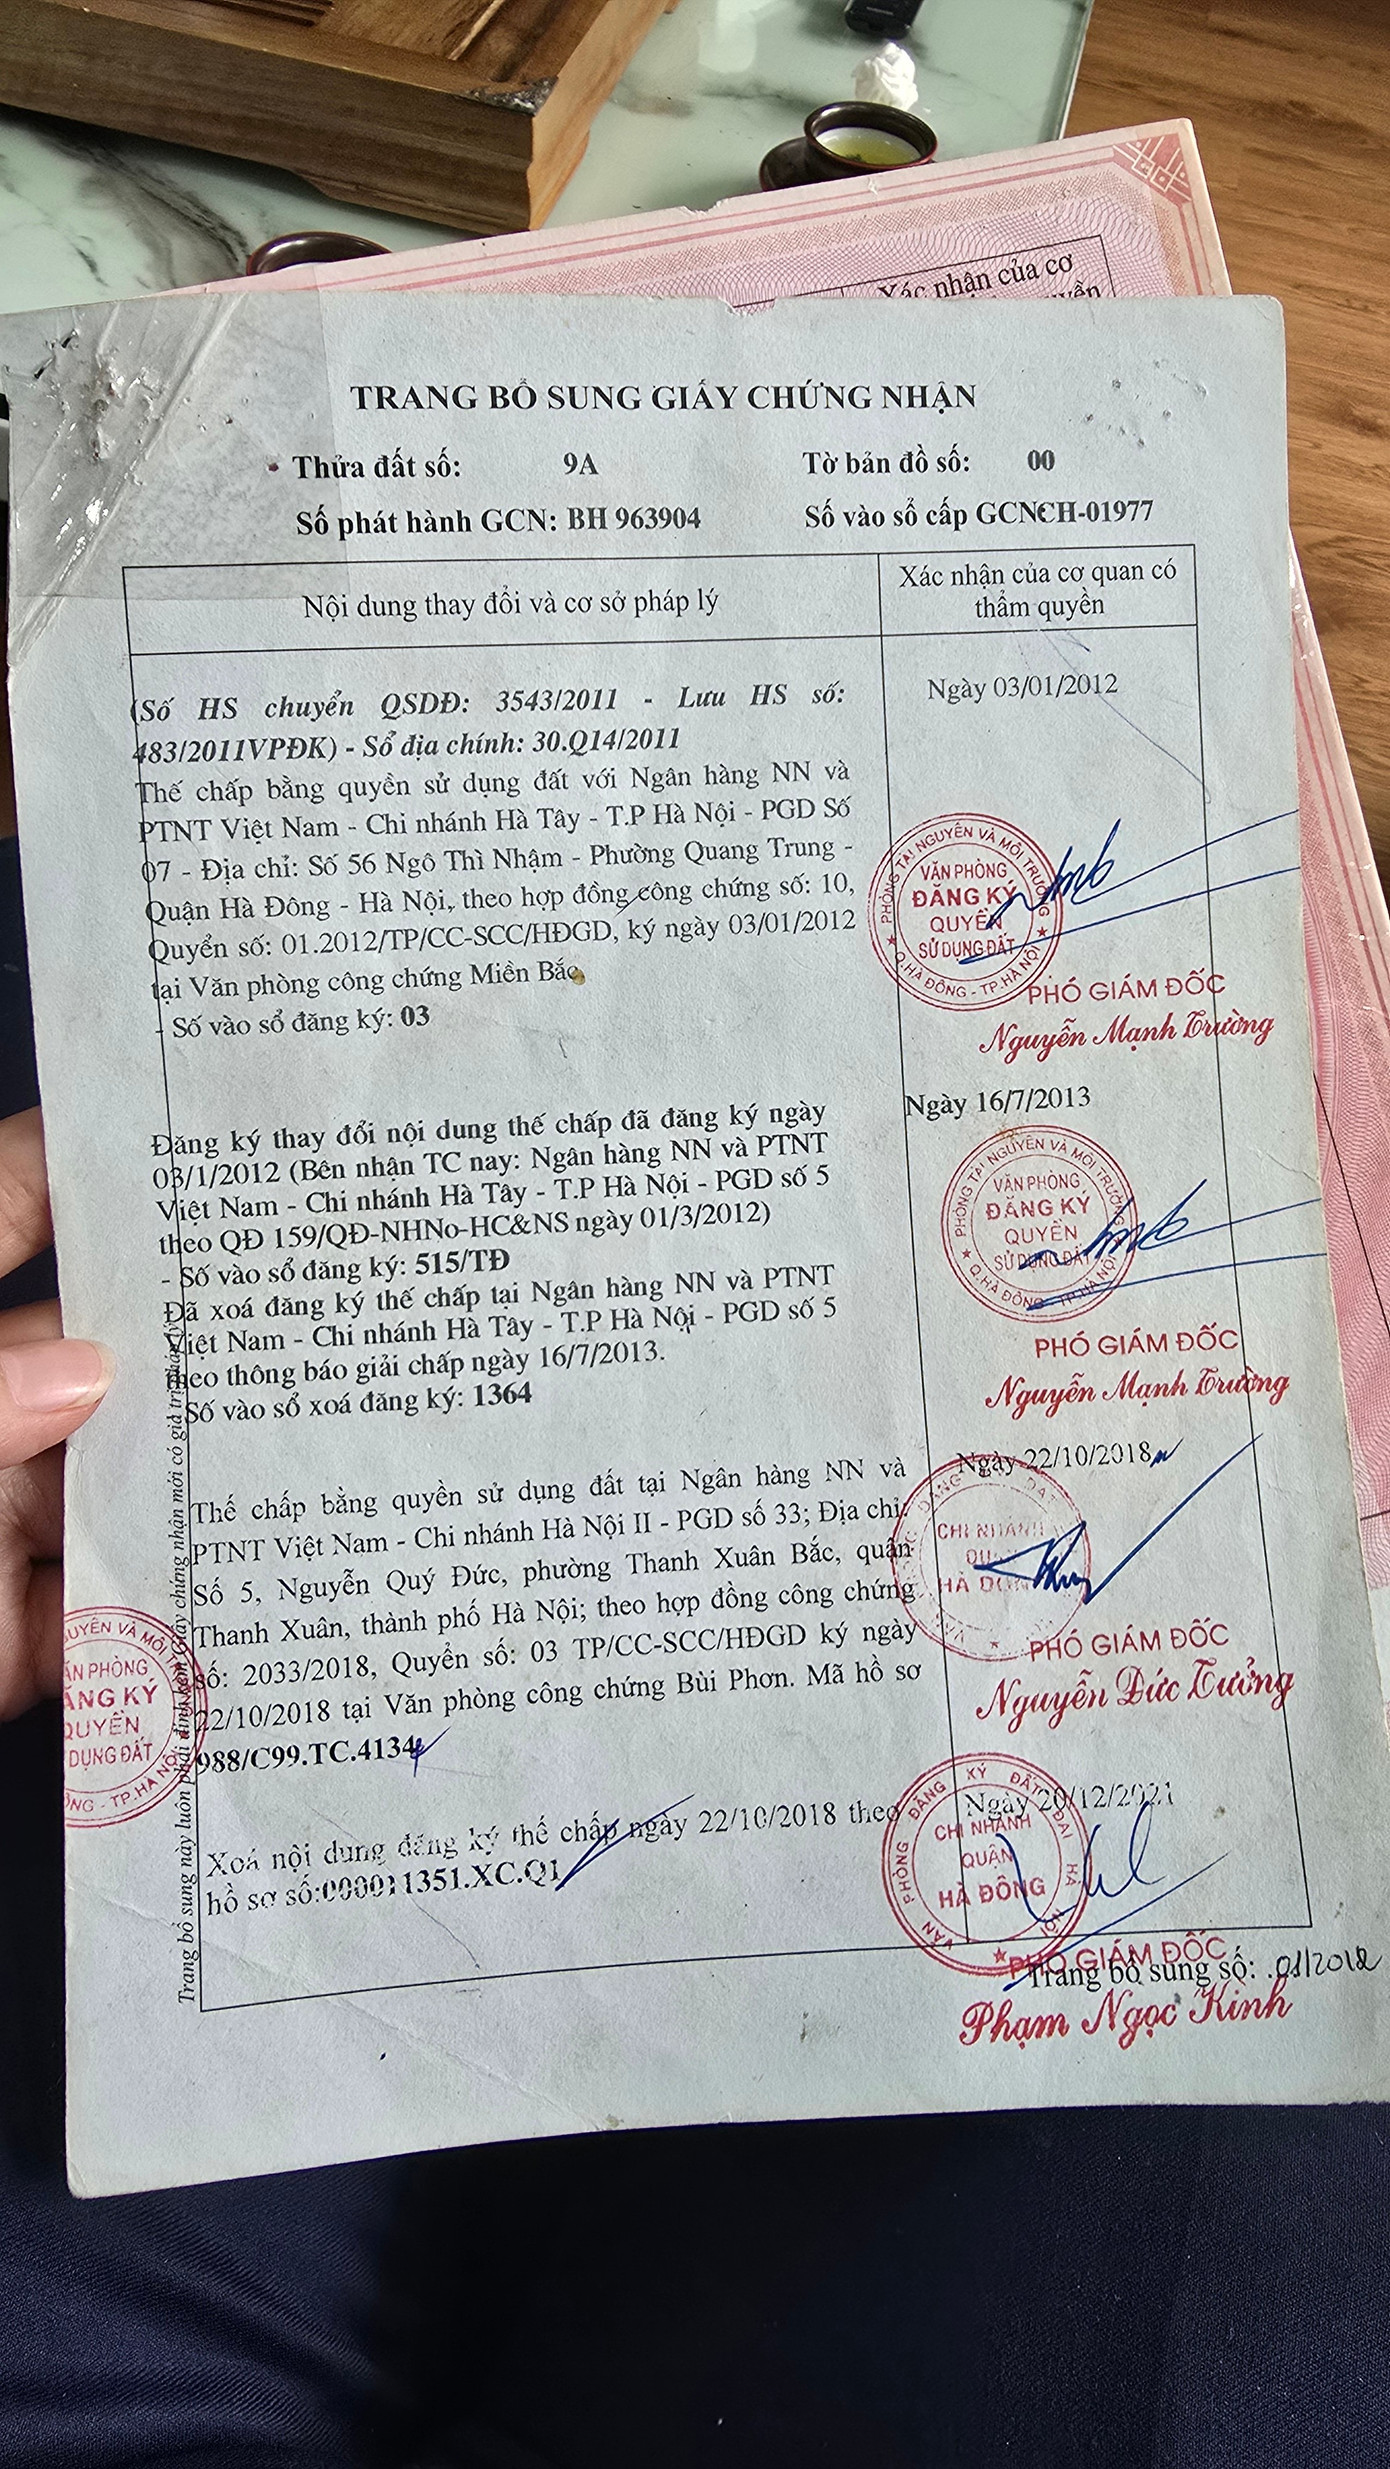 Xác nhận của cơ
TRANG BỔ SUNG GIẤY CHỨNG NHẬN
Thửa đất số: 9A Tờ bản đồ số: 00
Số phát hành GCN: BH 963904 Số vào sổ cấp GCNCH-01977
Nội dung thay đổi và cơ sở pháp lý
Xác nhận của cơ quan có
thẩm quyền
(Số HS chuyển QSDĐ: 3543/2011 - Lưu HS số:
483/2011VPĐK) - Sổ địa chính: 30.Q14/2011
Thế chấp bằng quyền sử dụng đất với Ngân hàng NN và
PTNT Việt Nam - Chi nhánh Hà Tây - T.P Hà Nội - PGD Số
07 - Địa chỉ: Số 56 Ngô Thì Nhậm - Phường Quang Trung -
Quận Hà Đông - Hà Nội, theo hợp đồng công chứng số: 10,
Quyển số: 01.2012/TP/CC-SCC/HĐGD, ký ngày 03/01/2012
tại Văn phòng công chứng Miền Bắc
- Số vào sổ đăng ký: 03
Ngày 03/01/2012
PHÒNG TÀI NGUYÊN VÀ MÔI TRƯỜNG
VĂN PHÒNG
ĐĂNG KÝ
QUYỀN
SỬ DỤNG ĐẤT
Q.HÀ ĐÔNG - TP.HÀ NỘI
PHÓ GIÁM ĐỐC
Nguyễn Mạnh Trường
Đăng ký thay đổi nội dung thế chấp đã đăng ký ngày
03/1/2012 (Bên nhận TC nay: Ngân hàng NN và PTNT
Việt Nam - Chi nhánh Hà Tây - T.P Hà Nội - PGD số 5
theo QĐ 159/QĐ-NHNo-HC&NS ngày 01/3/2012)
- Số vào sổ đăng ký: 515/TĐ
Đã xoá đăng ký thế chấp tại Ngân hàng NN và PTNT
Việt Nam - Chi nhánh Hà Tây - T.P Hà Nội - PGD số 5
theo thông báo giải chấp ngày 16/7/2013.
Số vào sổ xoá đăng ký: 1364
Ngày 16/7/2013
PHÒNG TÀI NGUYÊN VÀ MÔI TRƯỜNG
VĂN PHÒNG
ĐĂNG KÝ
QUYỀN
SỬ DỤNG ĐẤT
Q.HÀ ĐÔNG - TP.HÀ NỘI
PHÓ GIÁM ĐỐC
Nguyễn Mạnh Trường
Thế chấp bằng quyền sử dụng đất tại Ngân hàng NN và
PTNT Việt Nam - Chi nhánh Hà Nội II - PGD số 33; Địa chỉ:
Số 5, Nguyễn Quý Đức, phường Thanh Xuân Bắc, quận
Thanh Xuân, thành phố Hà Nội; theo hợp đồng công chứng
số: 2033/2018, Quyển số: 03 TP/CC-SCC/HĐGD ký ngày
22/10/2018 tại Văn phòng công chứng Bùi Phơn. Mã hồ sơ
988/C99.TC.4134
Ngày 22/10/2018
CHI NHÁNH
QUẬN
HÀ ĐÔNG
PHÓ GIÁM ĐỐC
Nguyễn Đức Tưởng
Xoá nội dung đăng ký thế chấp ngày 22/10/2018 theo
hồ sơ số:000011351.XC.Q1
Ngày 20/12/2021
VĂN PHÒNG ĐĂNG KÝ ĐẤT ĐAI HÀ NỘI
CHI NHÁNH
QUẬN
HÀ ĐÔNG
PHÓ GIÁM ĐỐC
Trang bổ sung số: 01/2012
Phạm Ngọc Kinh
Trang bổ sung này luôn phải đính kèm Giấy chứng nhận mới có giá trị pháp lý
VĂN PHÒNG
ĐĂNG KÝ
QUYỀN
DỤNG ĐẤT